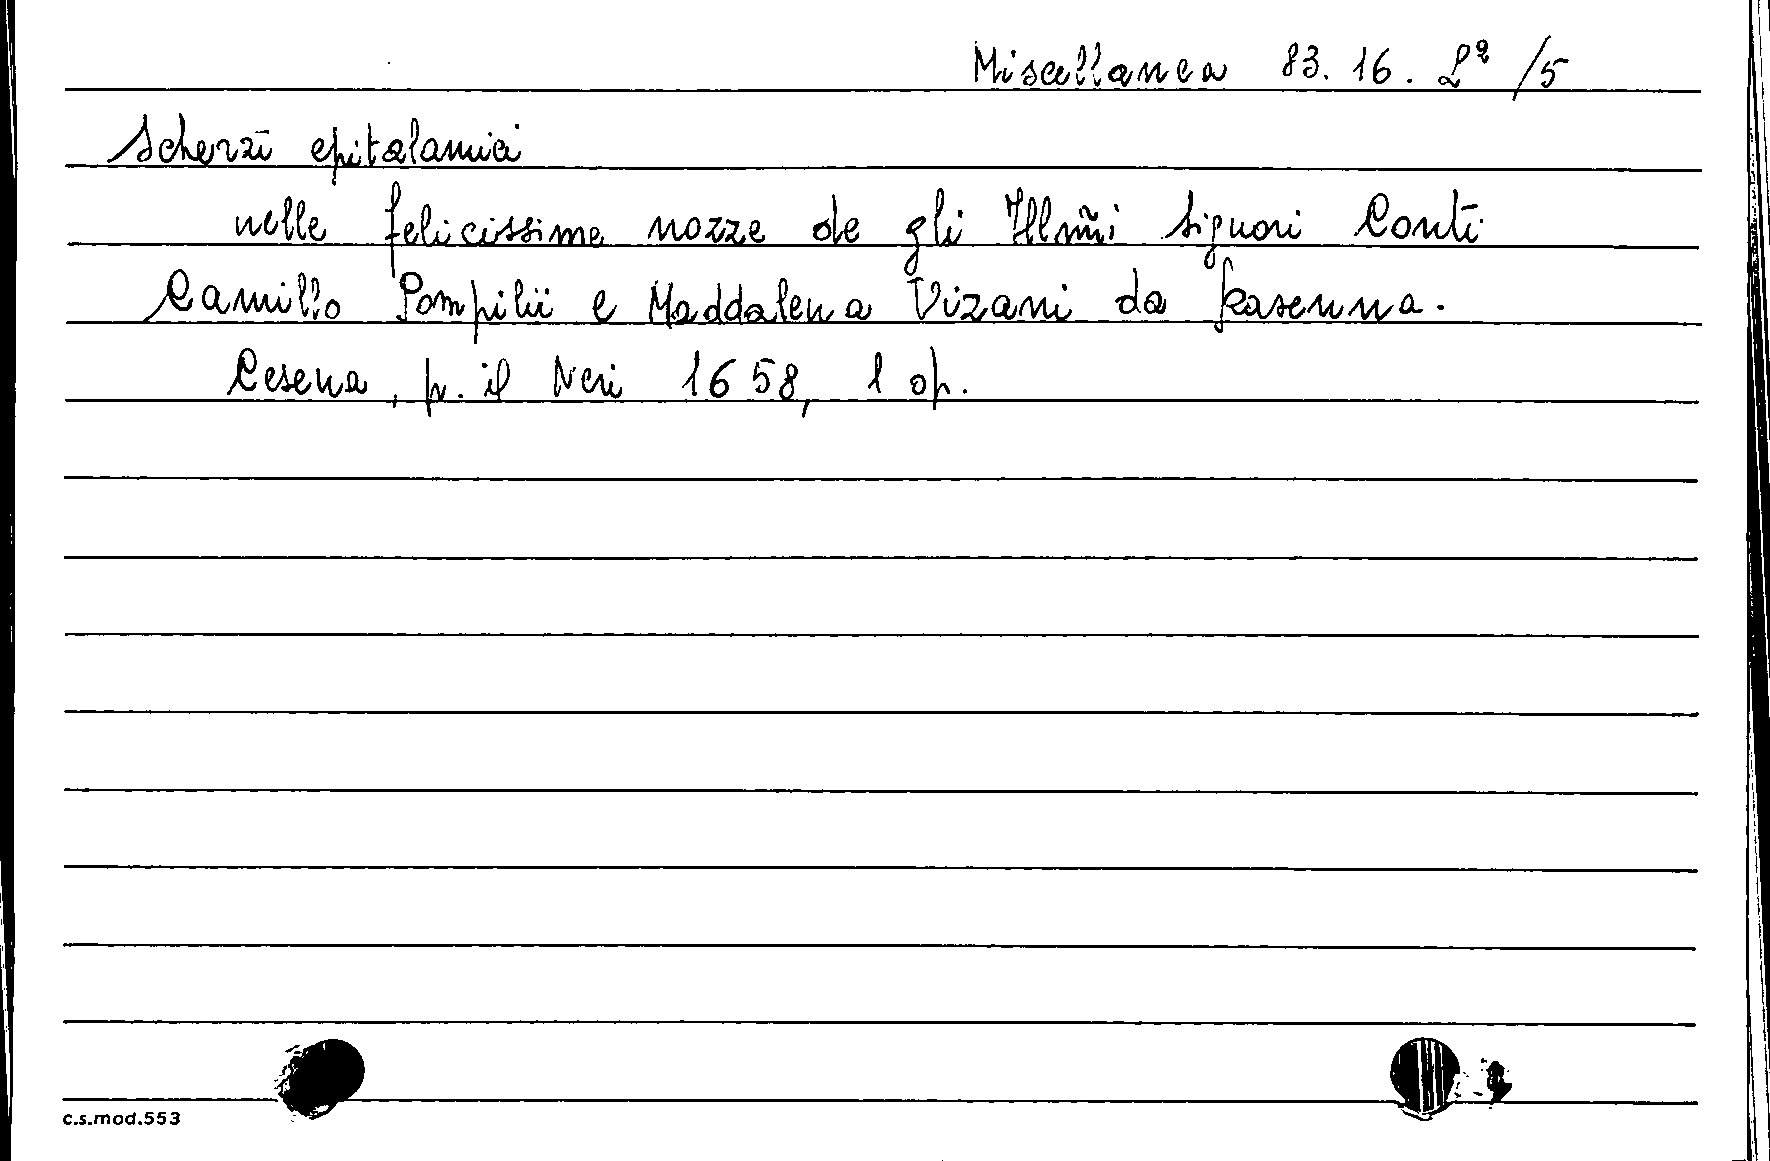 Miscellanea 83. 16. Lª /5
Scherzi epitalamici
nelle felicissime nozze de gli Illm̃i Signori Conti
Camillo Pompilii e Maddalena Vizani da Ravenna.
Cesena, p. il Neri 1658, 1 op.
c.s.mod.553